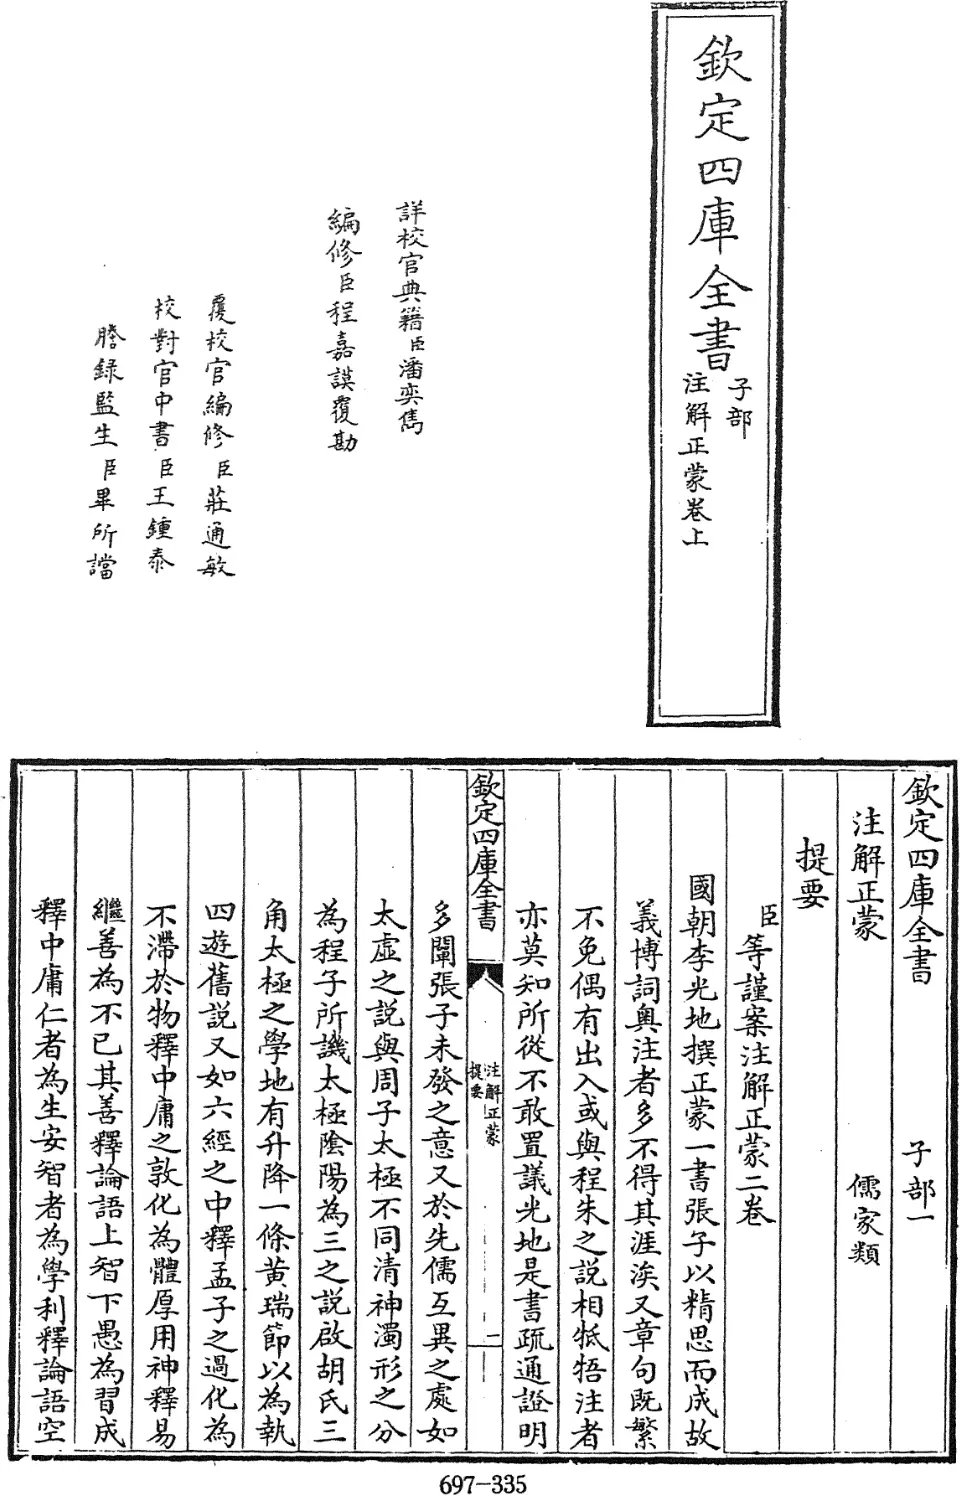 欽定四庫全書
子部
注解正蒙卷上
詳校官典籍臣潘奕雋
編修臣程嘉謨覆勘
覆校官編修臣莊通敏
校對官中書臣王鍾泰
謄錄監生臣畢所讜
欽定四庫全書　子部一
注解正蒙　儒家類
提要
臣等謹案注解正蒙二卷
國朝李光地撰正蒙一書張子以精思而成故
義博詞奧注者多不得其涯涘又章句既繁
不免偶有出入或與程朱之說相牴牾注者
亦莫知所從不敢置議光地是書疏通證明
欽定四庫全書
注解正蒙
提要
一
多闡張子未發之意又於先儒互異之處如
太虛之說與周子太極不同清神濁形之分
為程子所譏太極陰陽為三之說啟胡氏三
角太極之學地有升降一條黃瑞節以為執
四遊舊說又如六經之中釋孟子之過化為
不滯於物釋中庸之敦化為體厚用神釋易
繼善為不已其善釋論語上智下愚為習成
釋中庸仁者為生安智者為學利釋論語空
697-335